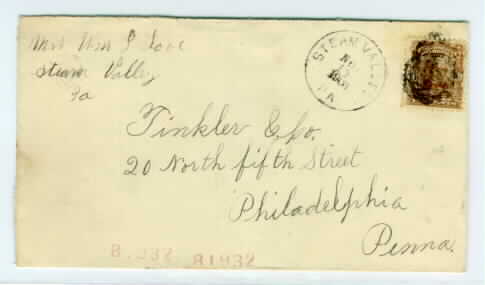 Mrs Wm S Love
Steam Valley
Pa
STEAM VALLEY
PA
Tinkler & Co.
20 North fifth Street
Philadelphia
Penna.
81932 81932